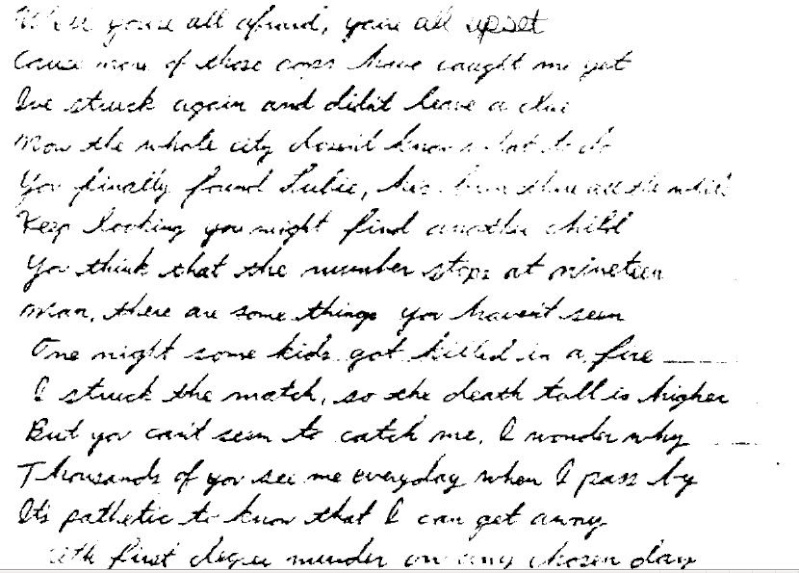 Well you're all afraid, you're all upset
Cause none of those cops have caught me yet
I've struck again and didn't leave a clue
Now the whole city doesn't know what to do
You finally found Lubie, he's been there all the while
Keep looking you might find another child
You think that the number stops at nineteen
Man, there are some things you haven't seen
One night some kids got killed in a fire
I struck the match, so the death toll is higher
But you can't seem to catch me, I wonder why
Thousands of you see me everyday when I pass by
It's pathetic to know that I can get away
with first degree murder on any chosen day